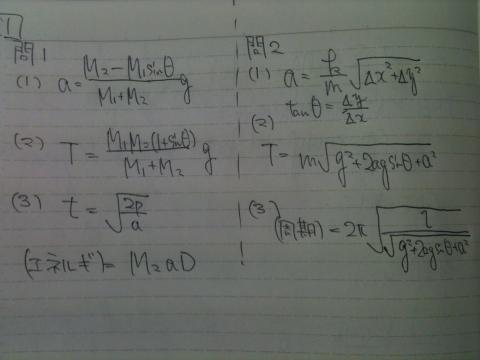 1
問1
(1) a = (M₂ - M₁sinθ)/(M₁+M₂) g
(2) T = (M₁M₂(1+sinθ))/(M₁+M₂) g
(3) t = √(2D/a)
(エネルギ)= M₂aD
問2
(1) a = k/m √(Δx²+Δy²)
tanθ = Δy/Δx
(2)
T = m√(g²+2agsinθ+a²)
(3) (周期) = 2π√(l/√(g²+2agsinθ+a²))